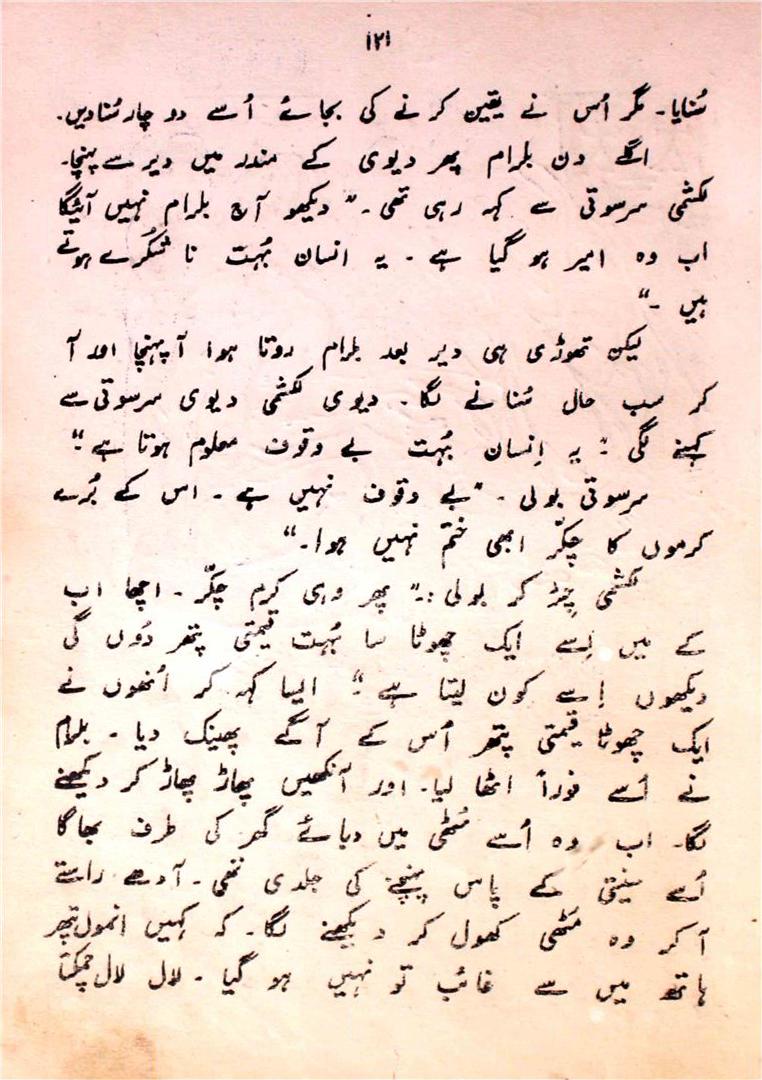 ۱۲۱
سُنایا۔ مگر اُس نے یقین کرنے کی بجائے اُسے دو چار سُنا دیں۔
اگلے دن بلرام پھر دیوی کے مندر میں دیر سے پہنچا۔
لکشمی سرسوتی سے کہہ رہی تھی۔ "دیکھو آج بلرام نہیں آئیگا
اب وہ امیر ہو گیا ہے۔ یہ انسان بُہت نا شکُرے ہوتے
ہیں۔"
لیکن تھوڑی ہی دیر بعد بلرام روتا ہوا آ پہنچا اور آ
کر سب حال سُنانے لگا۔ دیوی لکشمی دیوی سرسوتی سے
کہنے لگی : "یہ اِنسان بُہت بے وقوف معلوم ہوتا ہے"۔
سرسوتی بولی۔ "بے وقوف نہیں ہے۔ اس کے بُرے
کرموں کا چکّر ابھی ختم نہیں ہوا۔"
لکشمی چِڑ کر بولی :۔" پھر وہی کرم چکّر۔ اچھا اب
کے میں اِسے ایک چھوٹا سا بُہت قیمتی پتھر دُوں گی
دیکھوں اِسے کون لیتا ہے"۔ ایسا کہہ کر اُنھوں نے
ایک چھوٹا قیمتی پتھر اُس کے آگے پھینک دیا۔ بلرام
نے اُسے فوراً اٹھا لیا۔ اور آنکھیں پھاڑ پھاڑ کر دیکھنے
لگا۔ اب وہ اُسے مُٹھی میں دبائے گھر کی طرف بھاگا
اُسے نیتی کے پاس پہنچنے کی جلدی تھی۔ آدھے راستے
آ کر وہ مُٹھی کھول کر دیکھنے لگا۔ کہ کہیں انمول پتھر
ہاتھ میں سے غائب تو نہیں ہو گیا۔ لال لال چمکتا